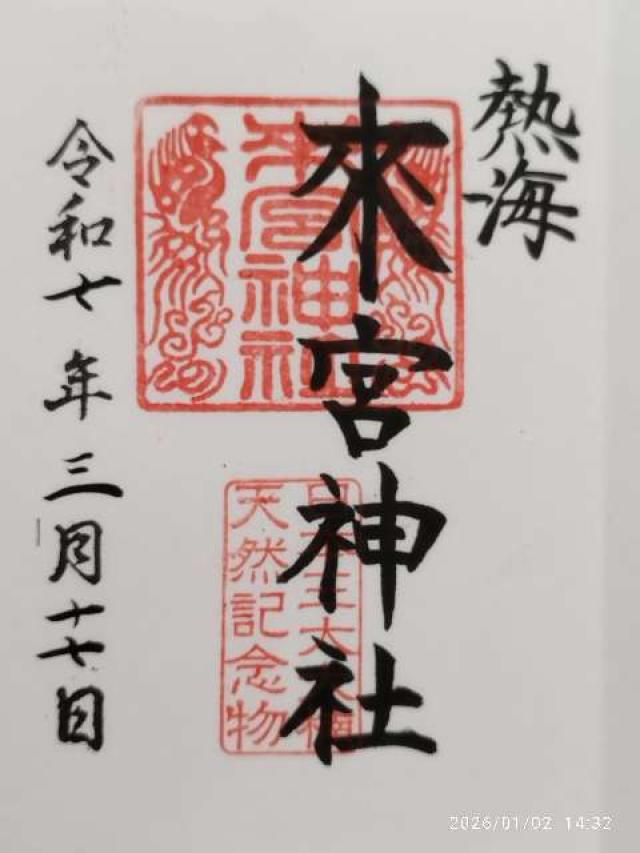 熱海
來宮神社
來宮神社
天然記念物
令和七年三月十七日
2026/01/02 14:32